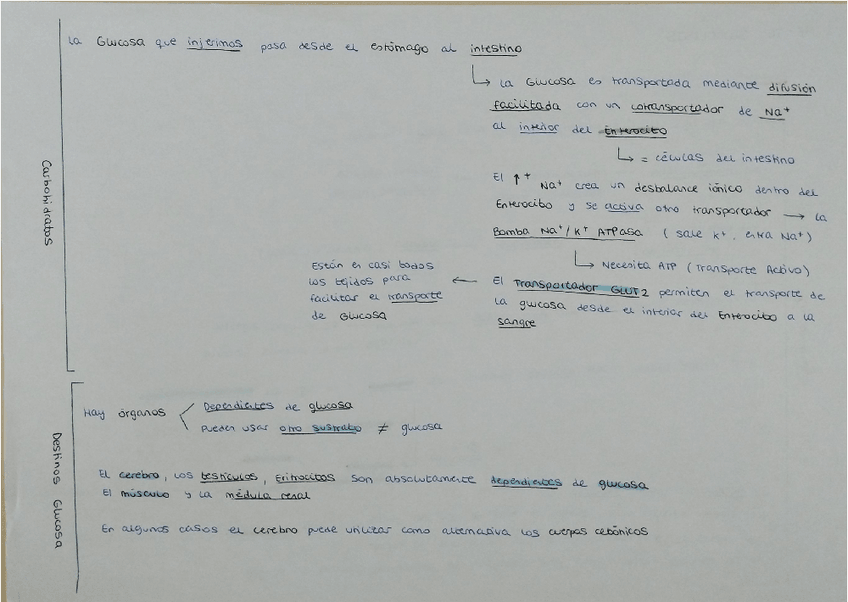 La Glucosa que injerimos pasa desde el estómago al intestino
↳ La Glucosa es transportada mediante difusión
facilitada con un cotransportador de Na⁺
al interior del Enterocito
↳ = células del intestino
El ↑⁺ Na⁺ crea un desbalance iónico dentro del
Enterocito y se activa otro transportador → La
Bomba Na⁺/K⁺ ATPasa (sale K⁺, entra Na⁺)
↳ Necesita ATP (Transporte Activo)
El Transportador GLUT2 permiten el transporte de
la glucosa desde el interior del Enterocito a la
sangre
Están en casi todos
los tejidos para
facilitar el transporte
de Glucosa
Carbohidratos
Hay órganos
Dependientes de glucosa
Pueden usar otro sustrato ≠ glucosa
El cerebro, los testículos, Eritrocitos son absolutamente dependientes de glucosa
El músculo y la médula renal
En algunos casos el cerebro puede utilizar como alternativa los cuerpos cetónicos
Destinos Glucosa